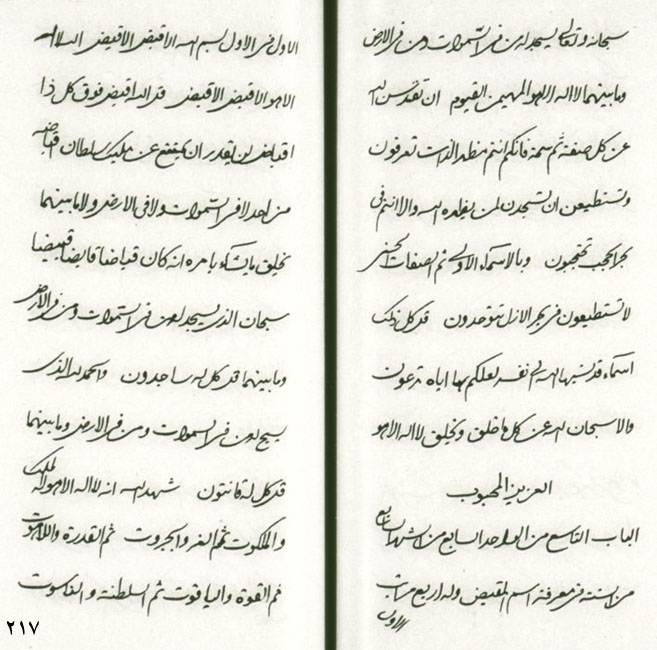 سبحانه وتعالی یسجد له من فی السموات ومن فی الارض
وما بینهما لا اله الا هو المهیمن القیوم ان تقدس الله
عن کل صفة ثم سمة فانکم انتم مظهر الذات تعرفون
وتستطیعن ان تسجدن لمن یظهره الله والا انتم فی
بحر الحجب تحتجبون وبالاسماء الاولی ثم الصفات الحسنی
لا تستطیعون فی بحر الازل تتوحدون قد کل ذلک
اسماء قد نسبها الله الی نفسه لعلکم بها ایاه تدعون
والا سبحان الله عن کل ما خلق ویخلق لا اله الا هو
العزیز المحبوب
الباب التاسع من الواحد السابع من الشهر السابع
من السنة فی معرفة اسم المقیض وله اربع مراتب
الاول
الاول فی الاول بسم الله الاقیض الاقیض الله لا اله
الا هو الاقیض الاقیض قل الله اقیض فوق کل ذا
اقیاض لن یقدر ان یمتنع عن ملیک سلطان اقیاضه
من احد لا فی السموات ولا فی الارض ولا ما بینهما
یخلق ما یشاء بامره انه کان قیاضا قایضا قییضا
سبحان الذی یسجد له من فی السموات ومن فی الارض
وما بینهما قل کل له ساجدون والحمد لله الذی
یسبح له من فی السموات ومن فی الارض وما بینهما
قل کل له قانتون شهد الله انه لا اله الا هو له الملک
والملکوت ثم العز والجبروت ثم القدرة واللاهوت
ثم القوة والیاقوت ثم السلطنة والناسوت
٢١٧